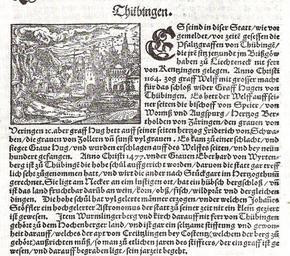 Thübingen.
ES seind in diser Statt/ wie vor
gemeldet/ vor zeitē gesessen die
Pfaltzgraffen von Thübingē/
die jrē sitz jetzund zů
haben zů Liechteneck nit fert
von Kentzingen gelegen. Anno Christi
1164. zog graff Welf mit grosser macht
für das schloß wider Graff Hugen von
Thübingen. Es hett der Welff auff sei-
ner seiten die bischoff von Speir/ von
Worms vnd Augspurg/ Hertzog Ber-
thold von Zäringen/ den grauen von
Veringen ꝛc. aber graff Hug hett auff seiner seiten hertzog Friderich von Schwa-
ben/ die grauen von Zollern vñ sunst vyl grauen. Es kam zů einer schlacht/ vnd
Graue Hug/ vnd wurden erschlagen auff des Welffen seitē/ vnd bey neün
hundert gefangen. Anno Christi 1477. vnder Grauen Eberhard von Wyrten-
berg ist zů Thübingē die hohe schůl auffgericht worden/ daruon die statt gar treff-
lich sehr zůgenommen hatt/ vnd wirt die ander nach Stůckgart im Hertzogthumb
gerechnet. Sie ligt am Necker an eim lustigen ort/ hat ein hübsch bergschloß/ vñ
ist das land fruchtbar darūb an wein/ korn/ obß/ fisch/ wildprät vnd dergleichen
dingen. Die hohe schůl hat vyl gelerter männer erzogen/ vnder welchen Johañes
Stöffler ein hochgelerter Astronomus der statt zů seiner zeit nit ein klein
ist gewesen. Item Wurmlingerberg vnd kirch darauff nit fert von Thübingen
gehört zů dem Hochenberger land/ vnd ist gar ein seltzame stifftung vnd gewon-
heit darauff/ welches der apt von Creützlingen bey Costentz/ welchem der berg zů
gehört/ außrichten můß/ so man zů etlichen jaren do stifftern/ der ein graff ist ge-
wesen/ vnd darauff begraben ligt/ sein jarzeit begeht.